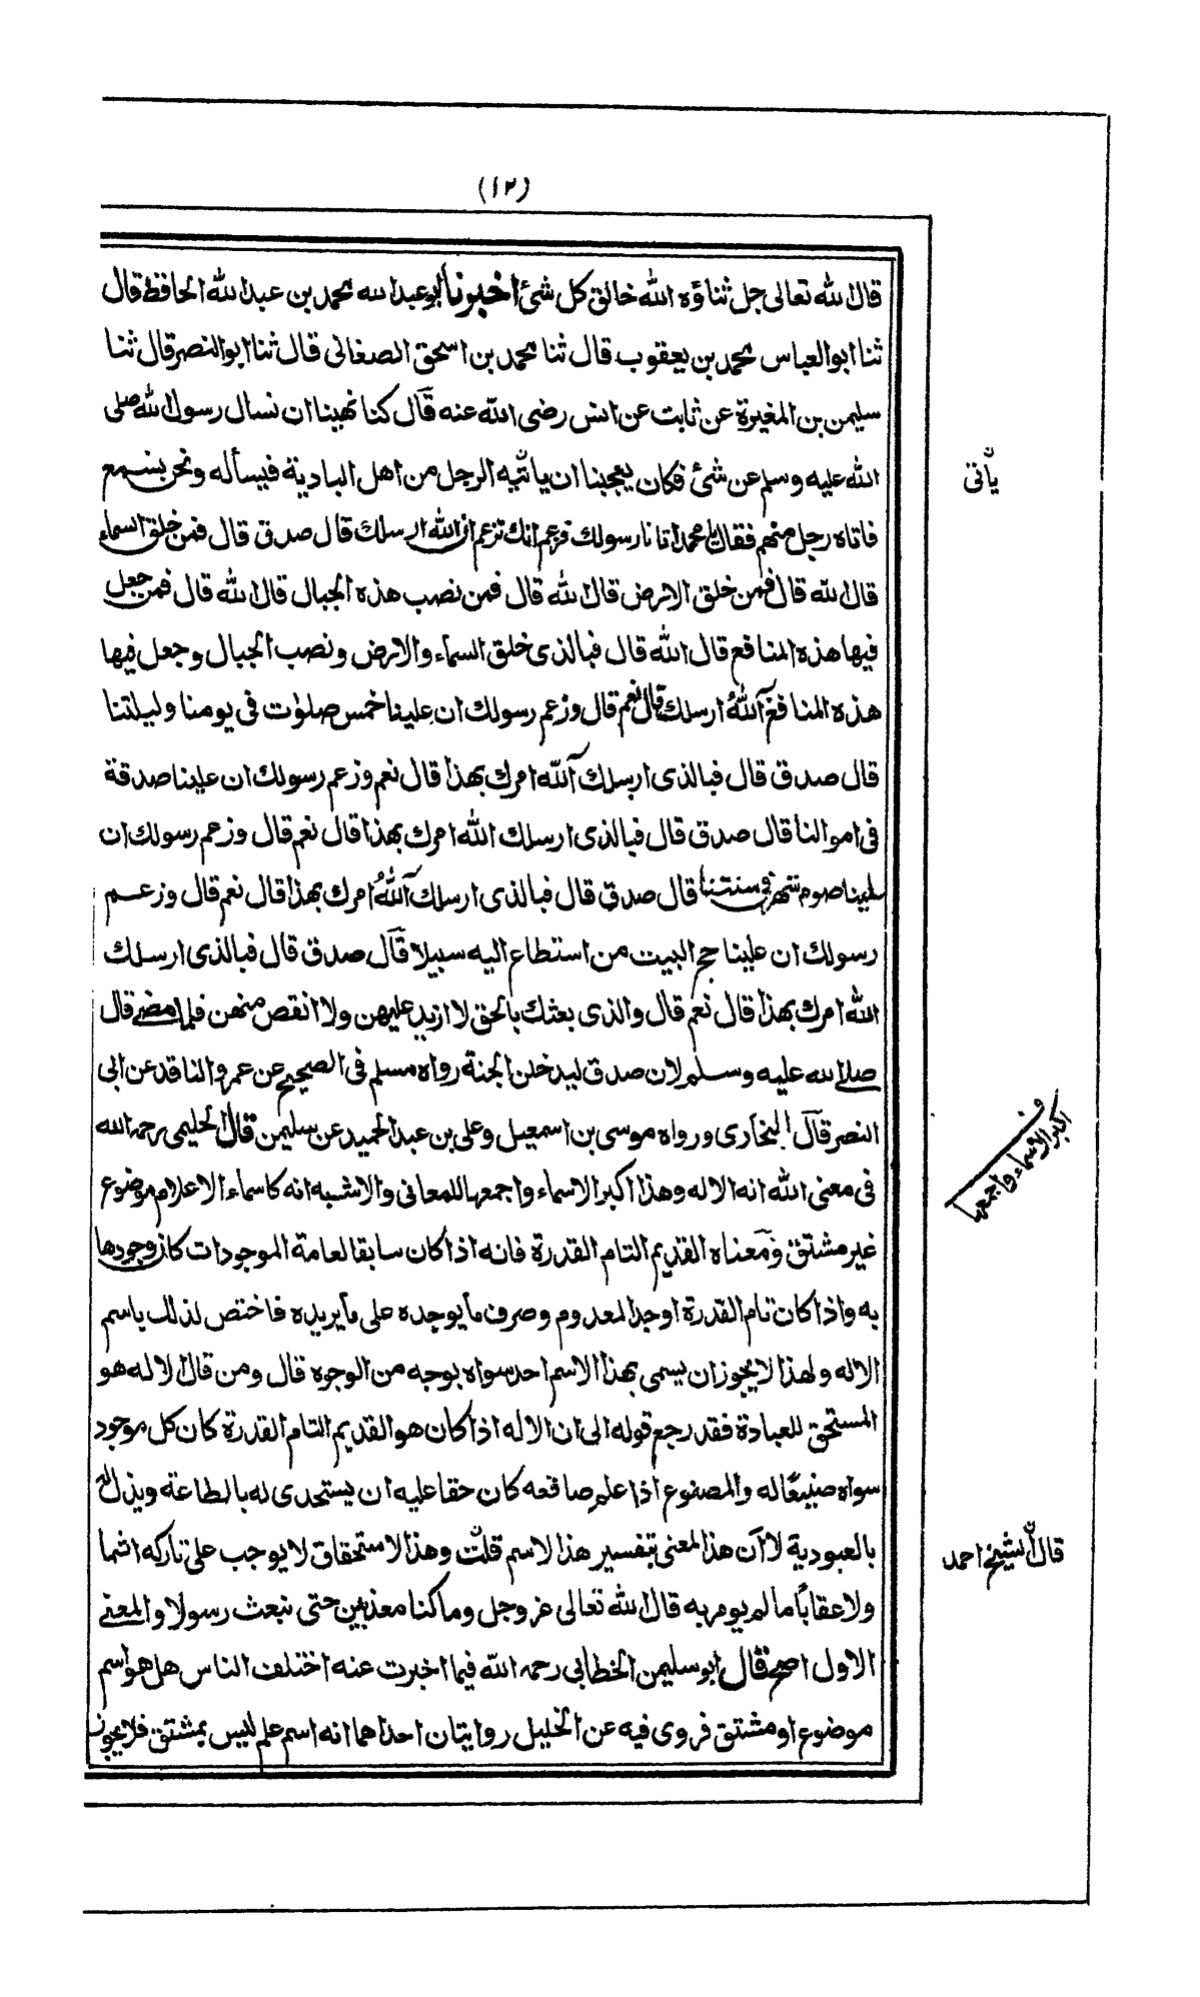 (١٢)
قال الله تعالى جل ثناؤه الله خالق كل شئ اخبرنا ابو عبد الله محمد بن عبد الله الحافظ قال
ثنا ابو العباس محمد بن يعقوب قال ثنا محمد بن اسحق الصغانى قال ثنا ابو النصر قال ثنا
سليمن بن المغيرة عن ثابت عن انس رضى الله عنه قال كنا نهينا ان نسال رسول الله صلى
الله عليه وسلم عن شئ فكان يعجبنا ان ياتيه الرجل من اهل البادية فيسأله ونحن نسمع
ياتى
فاتاه رجل منهم فقال يا محمد اتانا رسولك فزعم انك تزعم ان الله ارسلك قال صدق قال فمن خلق السماء
قال الله قال فمن خلق الارض قال الله قال فمن نصب هذه الجبال قال الله قال فمن جعل
فيها هذه المنافع قال الله قال فبالذى خلق السماء والارض ونصب الجبال وجعل فيها
هذه المنافع آلله ارسلك قال نعم قال وزعم رسولك ان علينا خمس صلوات فى يومنا وليلتنا
قال صدق قال فبالذى ارسلك آلله امرك بهذا قال نعم وزعم رسولك ان علينا صدقة
فى اموالنا قال صدق قال فبالذى ارسلك الله امرك بهذا قال نعم قال وزعم رسولك ان
علينا صوم شهر فى سنتنا قال صدق قال فبالذى ارسلك آلله امرك بهذا قال نعم قال وزعم
رسولك ان علينا حج البيت من استطاع اليه سبيلا قال صدق قال فبالذى ارسلك
الله امرك بهذا قال نعم قال والذى بعثك بالحق لا ازيد عليهن ولا انقص منهن فلما مضے قال
صلے الله عليه وسلم لان صدق ليدخلن الجنة رواه مسلم فى الصحيح عن عمرو الناقد عن ابى
النصر قال البخارى ورواه موسى بن اسمعيل وعلى بن عبد الحميد عن سليمن قال الحليمى رحمه الله
فى معنى الله انه الاله وهذا اكبر الاسماء واجمعها للمعانى والاشبه انه كاسماء الاعلام موضوع
ف اكبر الاسماء واجمعها
غير مشتق ومعناه القديم التام القدرة فانه اذا كان سابقا لعامة الموجودات كان وجودها
به واذا كان تام القدرة اوجد المعدوم وصرف ما يوجده على ما يريده فاختص لذلك باسم
الاله ولهذا لا يجوز ان يسمى بهذا الاسم احد سواه بوجه من الوجوه قال ومن قال الاله هو
المستحق للعبادة فقد رجع قوله الى ان الاله اذا كان هو القديم التام القدرة كان كل موجود
سواه صنيعًا له والمصنوع اذا علم صانعه كان حقا عليه ان يستحذى له بالطاعة ويذل له
بالعبودية لا ان هذا المعنى بتفسير هذا الاسم قلت وهذا الاستحقاق لا يوجب على تاركه اثما
قال الشيخ احمد
ولا عقابًا ما لم يومر به قال الله تعالى عز وجل وما كنا معذبين حتى نبعث رسولا والمعنے
الاول اصح قال ابو سليمن الخطابى رحمه الله فيما اخبرت عنه اختلف الناس هل هو اسم
موضوع او مشتق فروى فيه عن الخليل روايتان احداهما انه اسم علم ليس بمشتق فلا يجوز